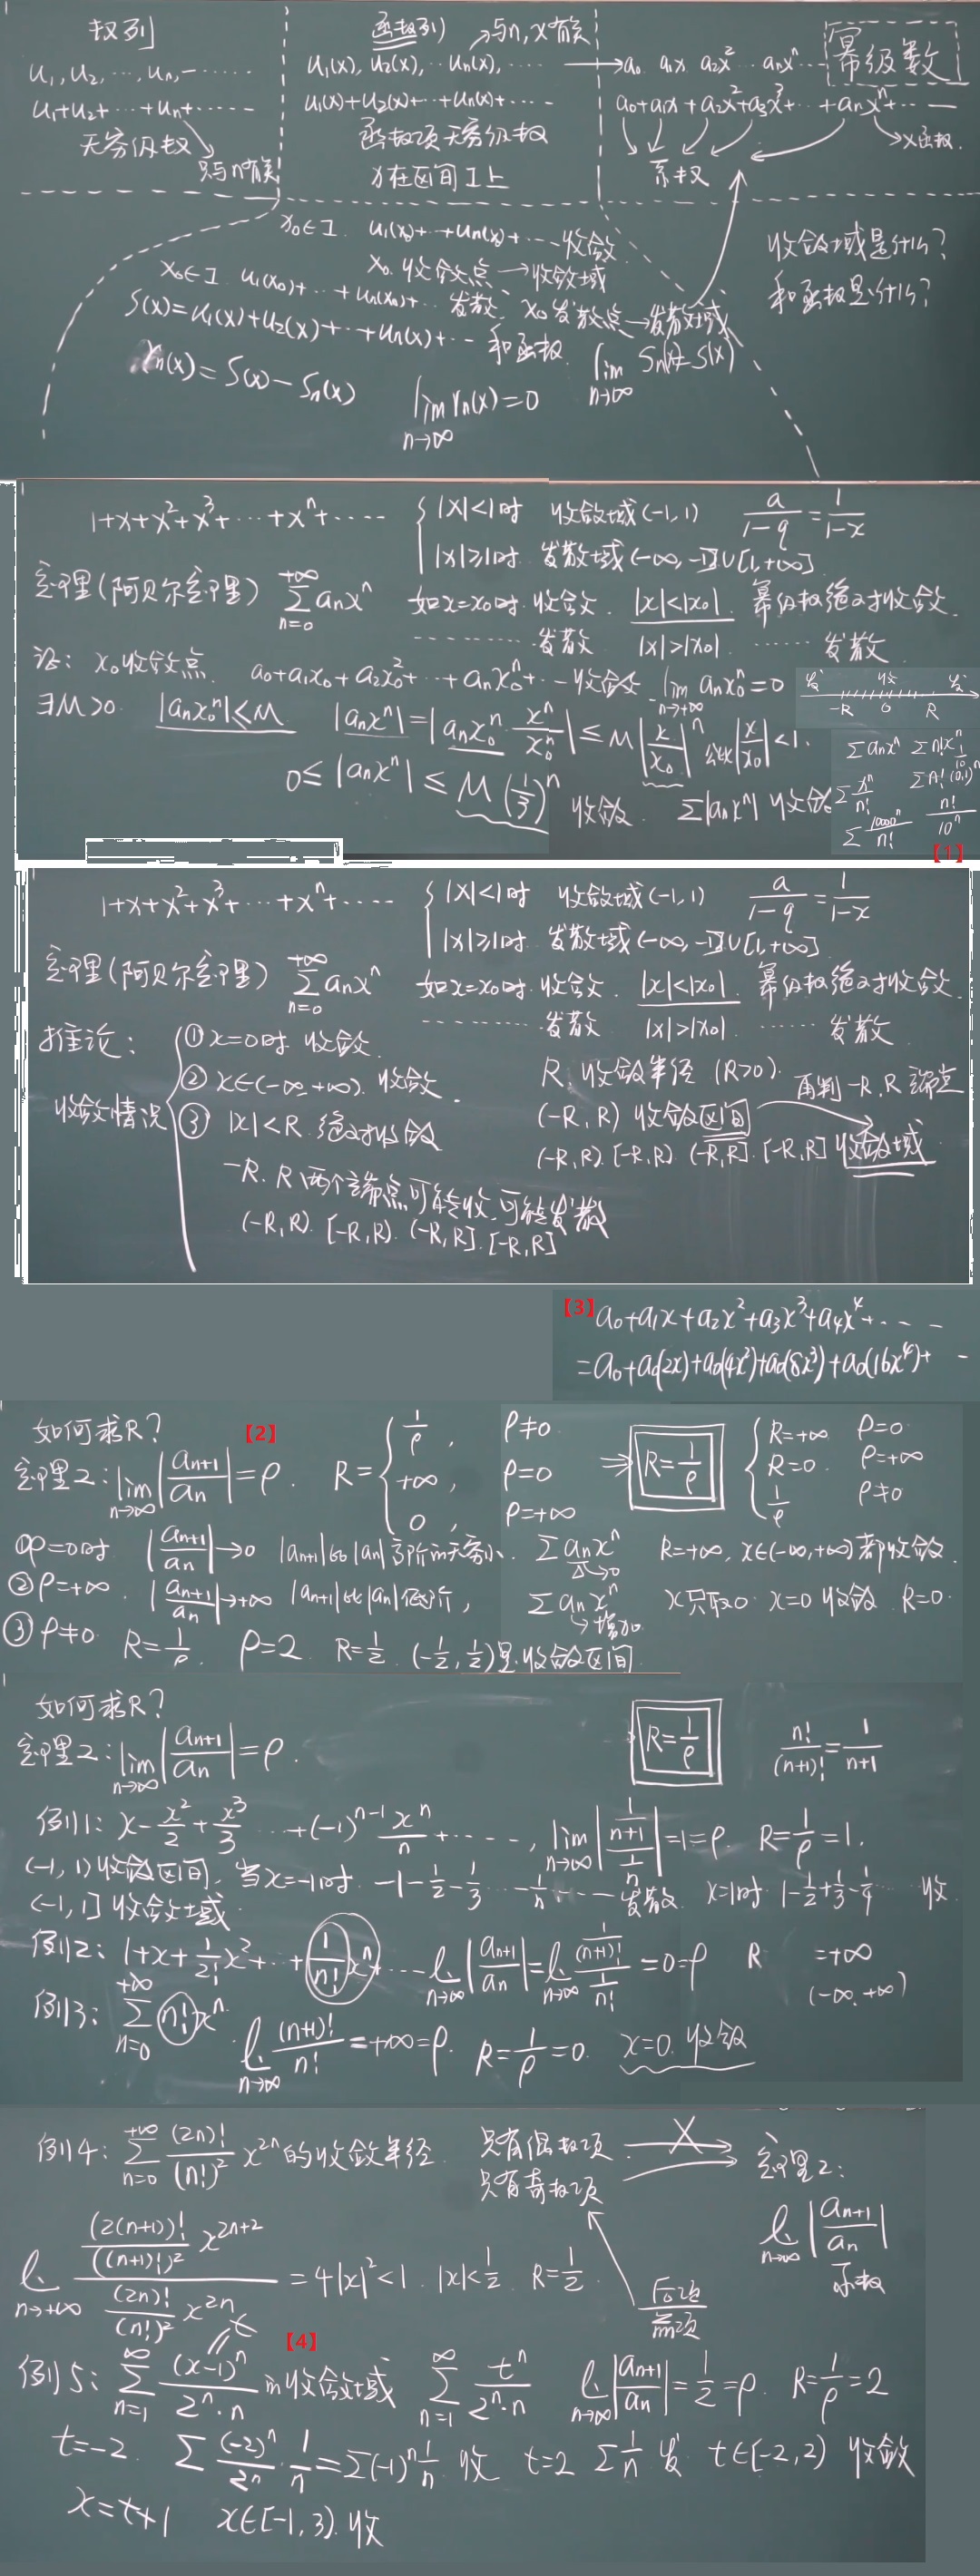 数列
u₁, u₂, …, uₙ, ……
u₁+u₂+…+uₙ+……
无穷级数
只与n有关
函数列 → 与n, x有关
u₁(x), u₂(x), … uₙ(x), ……
u₁(x)+u₂(x)+…+uₙ(x)+……
函数项无穷级数
x在区间I上
→ a₀ a₁x a₂x² … aₙxⁿ …
幂级数
a₀+a₁x+a₂x²+a₃x³+…+aₙxⁿ+……
系数
→x函数.
x₀∈I. u₁(x₀)+…+uₙ(x₀)+…收敛
x₀ 收敛点 → 收敛域
x₀∈I u₁(x₀)+…+uₙ(x₀)+… 发散. x₀发散点→发散域
S(x)=u₁(x)+u₂(x)+…+uₙ(x)+… 和函数. lim n→∞ Sₙ(x)=S(x)
rₙ(x)=S(x)-Sₙ(x) lim n→∞ rₙ(x)=0
收敛域是什么?
和函数是什么?
1+x+x²+x³+…+xⁿ+…… { |x|<1时 收敛域(-1,1) a/(1-q)=1/(1-x)
|x|≥1时. 发散域(-∞,-1]∪[1,+∞]
定理(阿贝尔定理) Σ n=0 +∞ aₙxⁿ 如x=x₀时.收敛. |x|<|x₀|. 幂级数绝对收敛.
………… 发散 |x|>|x₀|. …… 发散.
证: x₀收敛点. a₀+a₁x₀+a₂x₀²+…+aₙx₀ⁿ+…收敛 lim n→+∞ aₙx₀ⁿ=0
∃M>0. |aₙx₀ⁿ|≤M |aₙxⁿ|=|aₙx₀ⁿ·xⁿ/x₀ⁿ|≤M|x/x₀|ⁿ 公比|x/x₀|<1.
0≤|aₙxⁿ|≤M(1/3)ⁿ 收敛. Σ|aₙxⁿ| 收敛
发 收 发
-R 0 R
Σaₙxⁿ Σn!xⁿ
1/10
Σxⁿ/n! Σn!(0.1)ⁿ
Σ1000ⁿ/n! n!/10ⁿ
【1】
1+x+x²+x³+…+xⁿ+…… { |x|<1时 收敛域(-1,1) a/(1-q)=1/(1-x)
|x|≥1时. 发散域(-∞,-1]∪[1,+∞]
定理(阿贝尔定理) Σ n=0 +∞ aₙxⁿ 如x=x₀时.收敛. |x|<|x₀|. 幂级数绝对收敛.
………… 发散 |x|>|x₀|. …… 发散.
推论:
收敛情况
① x=0时 收敛.
② x∈(-∞,+∞). 收敛.
③ |x|<R. 绝对收敛
-R. R 两个端点可能收.可能发散
(-R,R). [-R,R). (-R,R]. [-R,R]
R:收敛半径 (R>0). 再判-R.R端点
(-R,R) 收敛区间
(-R,R). [-R,R). (-R,R]. [-R,R] 收敛域
【3】a₀+a₁x+a₂x²+a₃x³+a₄x⁴+……
=a₀+a₀(2x)+a₀(4x²)+a₀(8x³)+a₀(16x⁴)+…
如何求R? 【2】
定理2: lim n→∞ |aₙ₊₁/aₙ|=ρ. R={ 1/ρ, ρ≠0
+∞, ρ=0
0, ρ=+∞
⇒ R=1/ρ
{ R=+∞ ρ=0
R=0. ρ=+∞
1/ρ ρ≠0
①ρ=0时 |aₙ₊₁/aₙ|→0 |aₙ₊₁|比|aₙ|高阶的无穷小. Σaₙxⁿ →0 R=+∞, x∈(-∞,+∞)都收敛.
②ρ=+∞. |aₙ₊₁/aₙ|→+∞ |aₙ₊₁|比|aₙ|低阶, Σaₙxⁿ →增加. x只取0 x=0 收敛. R=0.
③ρ≠0 R=1/ρ. ρ=2. R=1/2. (-1/2,1/2)是收敛区间.
如何求R?
定理2: lim n→∞ |aₙ₊₁/aₙ|=ρ. R=1/ρ n!/(n+1)!=1/(n+1)
例1: x-x²/2+x³/3 …+(-1)ⁿ⁻¹xⁿ/n+……, lim n→∞ |(1/(n+1))/(1/n)|=1=ρ. R=1/ρ=1.
(-1,1)收敛区间, 当x=-1时. -1-1/2-1/3…-1/n…… 发散. x=1时. 1-1/2+1/3-1/4…… 收.
(-1,1] 收敛域.
例2: 1+x+1/2!x²+…+1/n!xⁿ+… lim n→∞ |aₙ₊₁/aₙ|=lim n→∞ (1/(n+1)!)/(1/n!)=0=ρ R =+∞
(-∞,+∞)
例3: Σ n=0 +∞ n!xⁿ. lim n→∞ (n+1)!/n!=+∞=ρ. R=1/ρ=0. x=0. 收敛
例4: Σ n=0 +∞ (2n)!/(n!)² x²ⁿ的收敛半径. 只有偶数项
只有奇数项
定理2:
lim n→∞ |aₙ₊₁/aₙ|
系数
lim n→+∞ ((2(n+1))!/((n+1)!)² x²ⁿ⁺²)/((2n)!/(n!)² x²ⁿ)=4|x|²<1. |x|<1/2. R=1/2.
后项/前项
t
【4】
例5: Σ n=1 ∞ (x-1)ⁿ/(2ⁿ·n) 的收敛域 Σ n=1 ∞ tⁿ/(2ⁿ·n) lim n→∞ |aₙ₊₁/aₙ|=1/2=ρ. R=1/ρ=2
t=-2. Σ(-2)ⁿ/2ⁿ·1/n=Σ(-1)ⁿ1/n 收 t=2 Σ1/n 发 t∈[-2,2) 收敛
x=t+1 x∈[-1,3).收